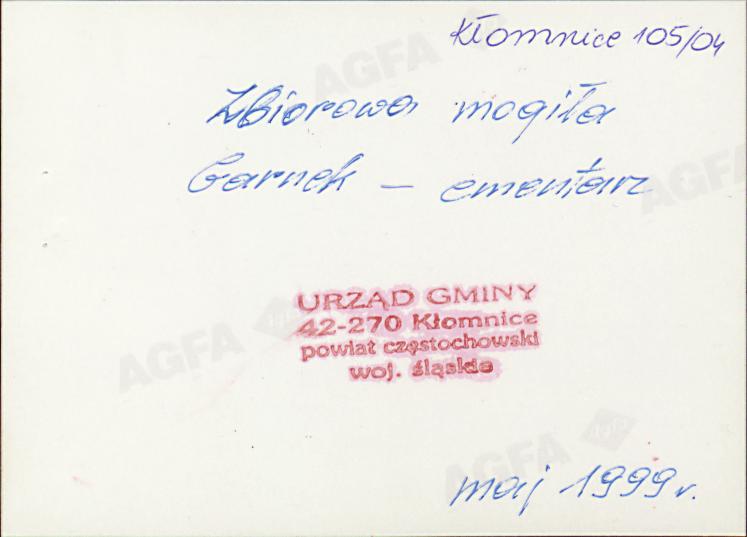 Kłomnice 105/04
Zbiorowa mogiła
Garnek – cmentarz
URZĄD GMINY
42-270 Kłomnice
powiat częstochowski
woj. śląskie
maj 1999 r.
AGFA
AGFA
AGFA
AGFA